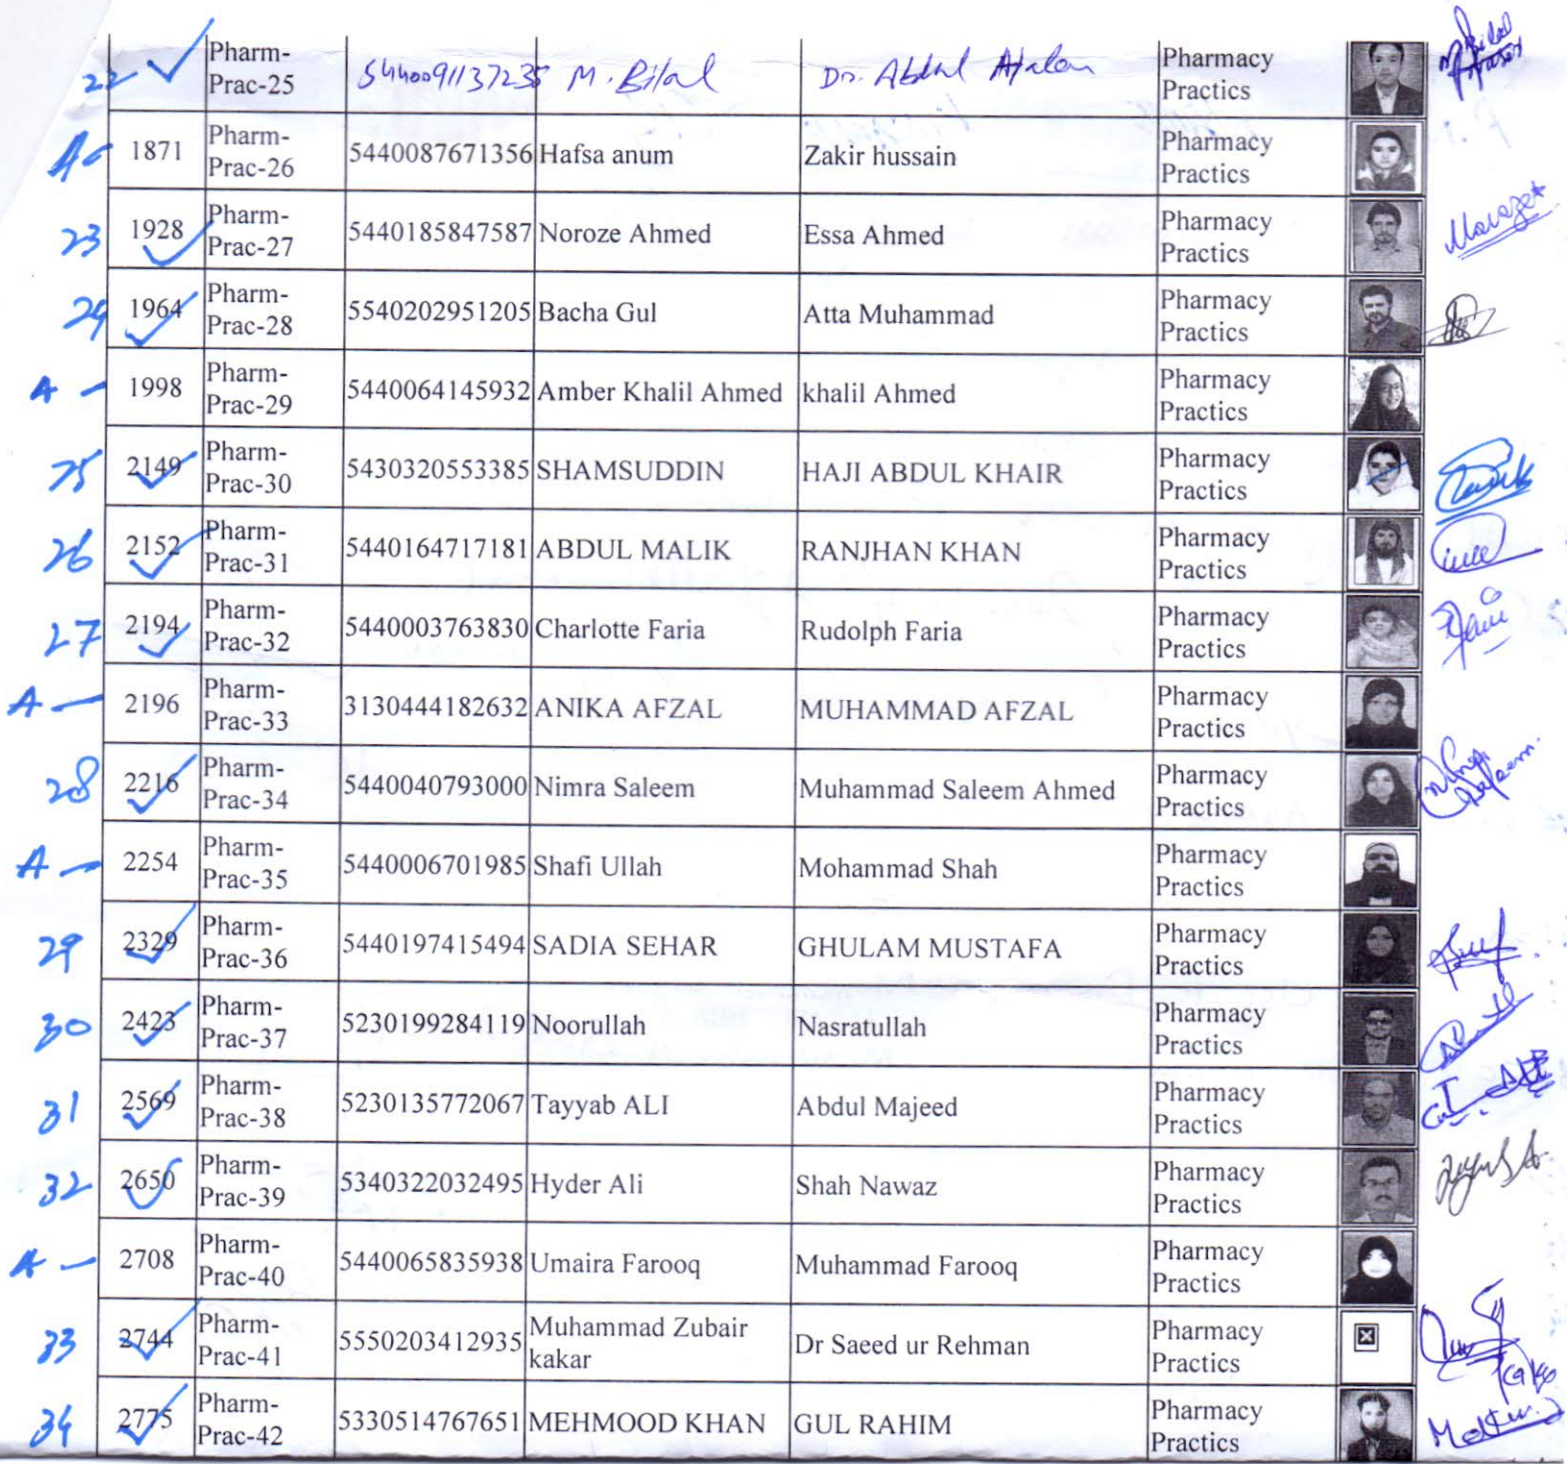 22 Pharm-
Prac-25 5440091137235 M. Bilal Dr. Abdul Pharmacy
Practics
A 1871 Pharm-
Prac-26 5440087671356 Hafsa anum Zakir hussain Pharmacy
Practics
23 1928 Pharm-
Prac-27 5440185847587 Noroze Ahmed Essa Ahmed Pharmacy
Practics
24 1964 Pharm-
Prac-28 5540202951205 Bacha Gul Atta Muhammad Pharmacy
Practics
A - 1998 Pharm-
Prac-29 5440064145932 Amber Khalil Ahmed khalil Ahmed Pharmacy
Practics
25 2149 Pharm-
Prac-30 5430320553385 SHAMSUDDIN HAJI ABDUL KHAIR Pharmacy
Practics
26 2152 Pharm-
Prac-31 5440164717181 ABDUL MALIK RANJHAN KHAN Pharmacy
Practics
27 2194 Pharm-
Prac-32 5440003763830 Charlotte Faria Rudolph Faria Pharmacy
Practics
A - 2196 Pharm-
Prac-33 3130444182632 ANIKA AFZAL MUHAMMAD AFZAL Pharmacy
Practics
28 2216 Pharm-
Prac-34 5440040793000 Nimra Saleem Muhammad Saleem Ahmed Pharmacy
Practics
A - 2254 Pharm-
Prac-35 5440006701985 Shafi Ullah Mohammad Shah Pharmacy
Practics
29 2329 Pharm-
Prac-36 5440197415494 SADIA SEHAR GHULAM MUSTAFA Pharmacy
Practics
30 2423 Pharm-
Prac-37 5230199284119 Noorullah Nasratullah Pharmacy
Practics
31 2569 Pharm-
Prac-38 5230135772067 Tayyab ALI Abdul Majeed Pharmacy
Practics
32 2650 Pharm-
Prac-39 5340322032495 Hyder Ali Shah Nawaz Pharmacy
Practics
A - 2708 Pharm-
Prac-40 5440065835938 Umaira Farooq Muhammad Farooq Pharmacy
Practics
33 2744 Pharm-
Prac-41 5550203412935 Muhammad Zubair
kakar Dr Saeed ur Rehman Pharmacy
Practics
34 2775 Pharm-
Prac-42 5330514767651 MEHMOOD KHAN GUL RAHIM Pharmacy
Practics